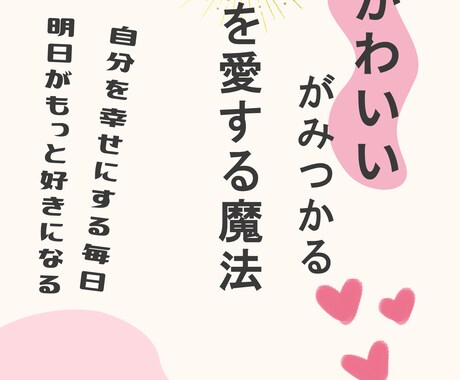 かわいい
がみつかる
を愛する魔法
自分を幸せにする毎日
明日がもっと好きになる